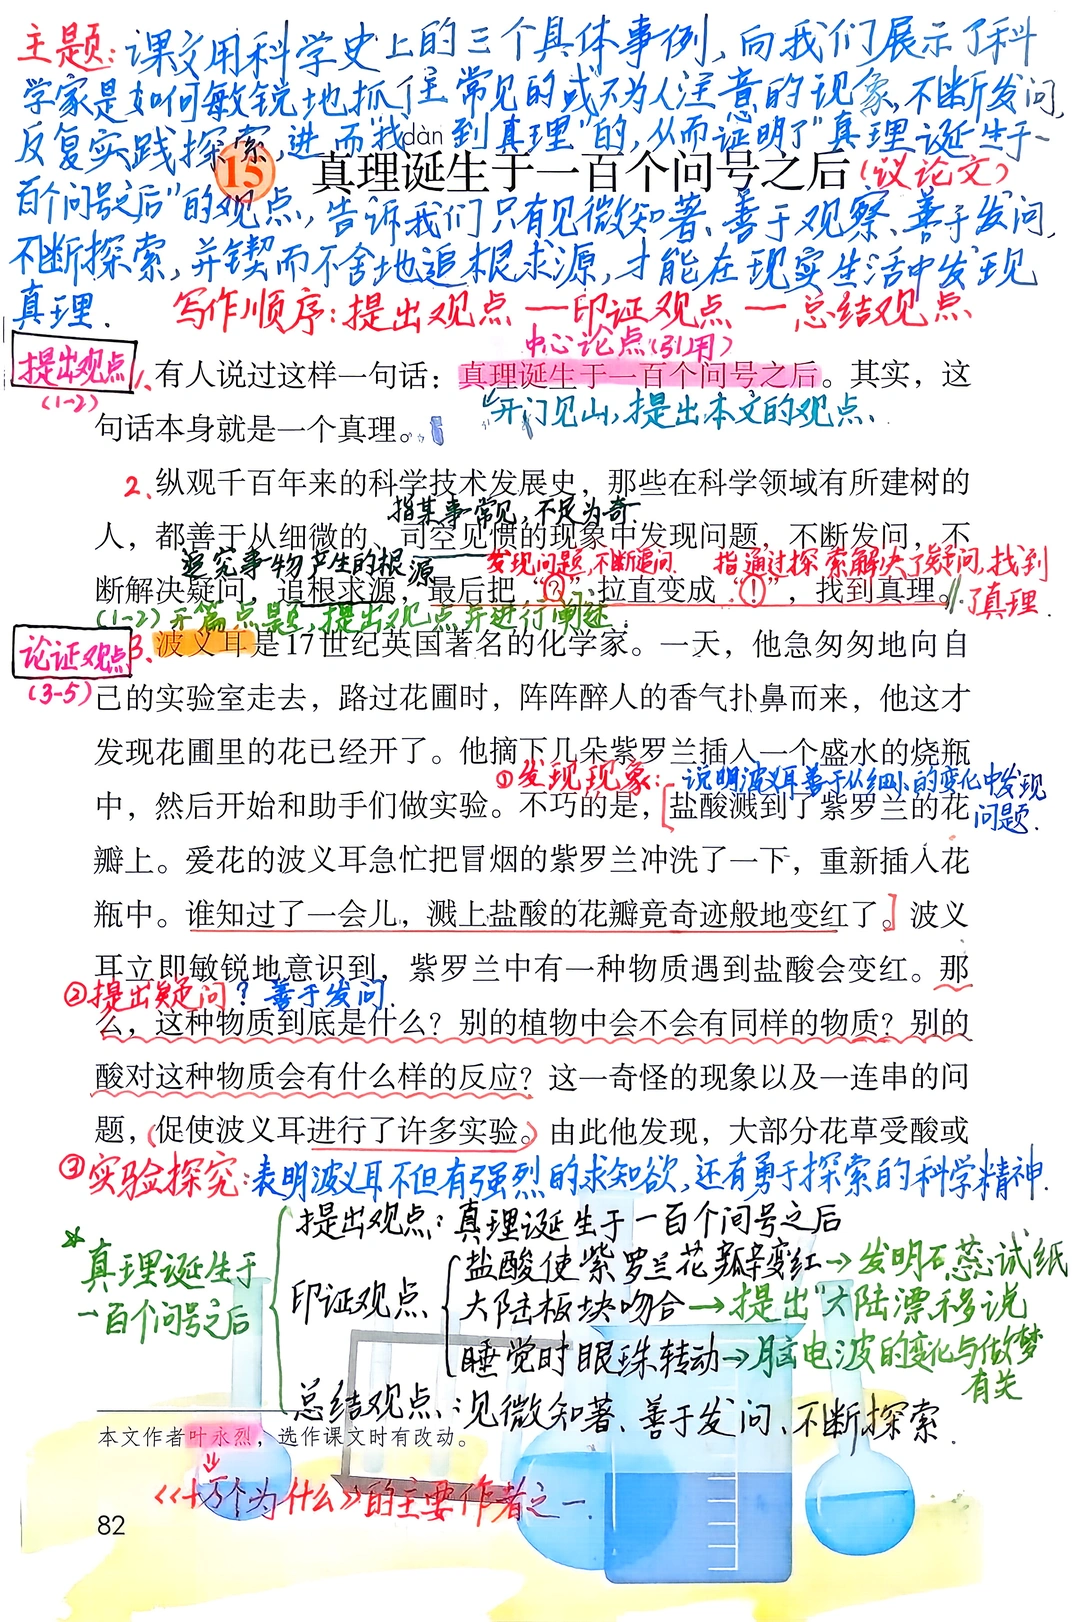 主题：课文用科学史上的三个具体事例，向我们展示了科
学家是如何敏锐地抓住常见的或不为人注意的现象，不断发问，
反复实践探索，进而"找到真理"的，从而证明了"真理诞生于一
dàn
15 真理诞生于一百个问号之后（议论文）
百个问号之后"的观点，告诉我们只有见微知著、善于观察、善于发问，
不断探索，并锲而不舍地追根求源，才能在现实生活中发现
真理．
写作顺序：提出观点—印证观点—总结观点
中心论点（引用）
提出观点
（1-2）
1、有人说过这样一句话：真理诞生于一百个问号之后。其实，这
开门见山，提出本文的观点．
句话本身就是一个真理。
2、纵观千百年来的科学技术发展史，那些在科学领域有所建树的
指某事常见，不足为奇．
人，都善于从细微的、司空见惯的现象中发现问题，不断发问，不
追究事物产生的根源
发现问题，不断追问．
指通过探索解决了疑问，找到了真理．
断解决疑问，追根求源，最后把“？”拉直变成“！”，找到真理。
（1-2）开篇点题，提出观点并进行阐述．
论证观点
（3-5）
3、波义耳是17世纪英国著名的化学家。一天，他急匆匆地向自
己的实验室走去，路过花圃时，阵阵醉人的香气扑鼻而来，他这才
发现花圃里的花已经开了。他摘下几朵紫罗兰插入一个盛水的烧瓶
①发现现象：说明波义耳善于从细小的变化中发现问题．
中，然后开始和助手们做实验。不巧的是，盐酸溅到了紫罗兰的花
瓣上。爱花的波义耳急忙把冒烟的紫罗兰冲洗了一下，重新插入花
瓶中。谁知过了一会儿，溅上盐酸的花瓣竟奇迹般地变红了。波义
耳立即敏锐地意识到，紫罗兰中有一种物质遇到盐酸会变红。那
②提出疑问？善于发问．
么，这种物质到底是什么？别的植物中会不会有同样的物质？别的
酸对这种物质会有什么样的反应？这一奇怪的现象以及一连串的问
题，促使波义耳进行了许多实验。由此他发现，大部分花草受酸或
③实验探究：表明波义耳不但有强烈的求知欲，还有勇于探索的科学精神．
真理诞生于
一百个问号之后
提出观点：真理诞生于一百个问号之后
印证观点
盐酸使紫罗兰花瓣变红→发明石蕊试纸
大陆板块吻合→提出"大陆漂移说
睡觉时眼珠转动→脑电波的变化与做梦
有关
总结观点：见微知著、善于发问、不断探索．
本文作者叶永烈，选作课文时有改动。
《十万个为什么》的主要作者之一．
82